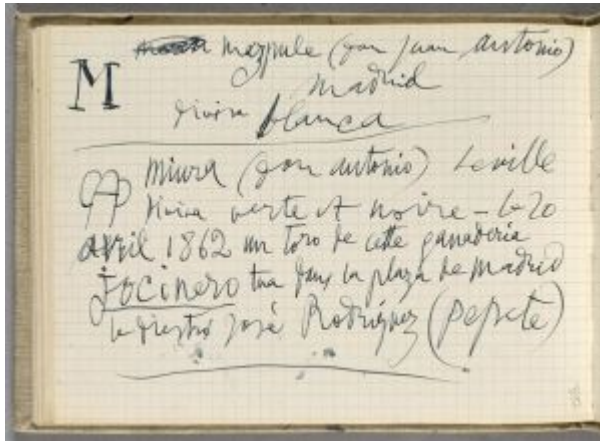 M mazpule (don Juan Antonio)
Madrid
blanca
Miura (don antonio) Seville
divisa verte et noire - le 20
avril 1862 un toro de cette ganaderia
Jocinero tua dans la plaza de Madrid
le diestro José Rodriguez (Pepete)